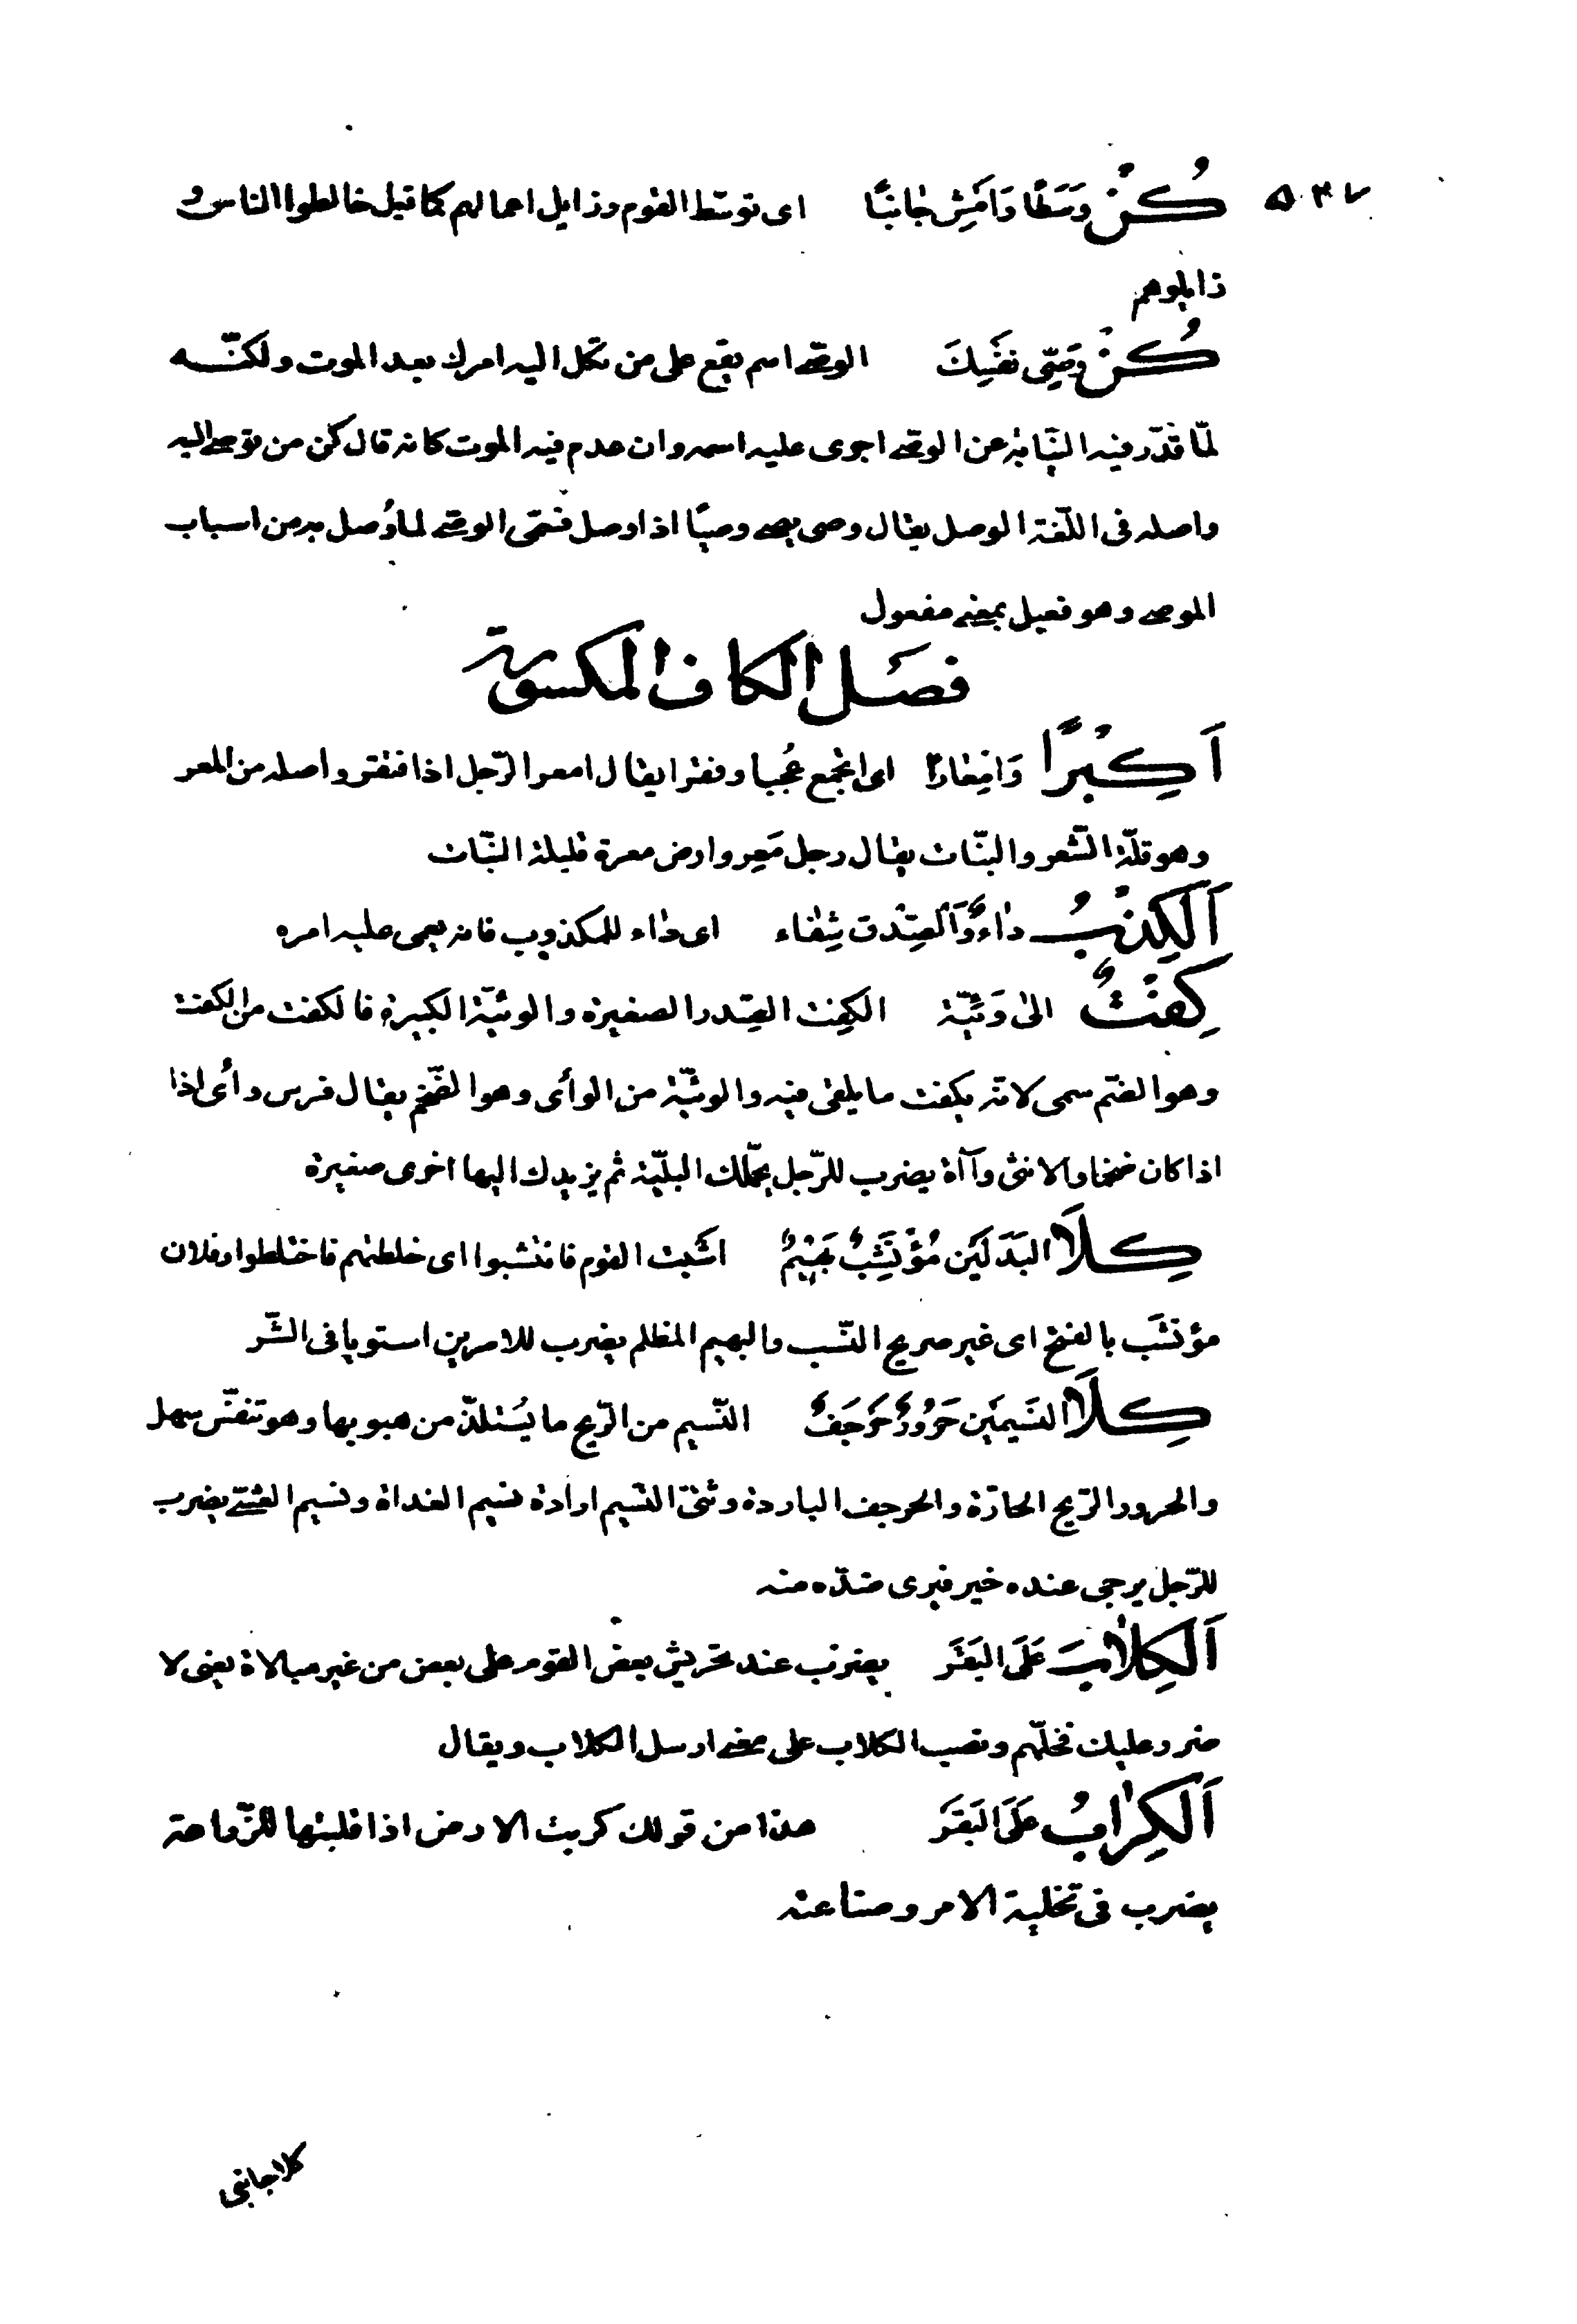 ٥٣٧
كُنْ وَسَطًا وَامْشِ جَانِبًا اى توسّط القوم وزايل اعمالهم كما قيل خالطوا الناس و
زايلوهم
كُنْ وَصِىَّ نَفْسِكَ الوصّى اسم يقع على من تكل اليه امرك بعد الموت ولكنّه
لمّا قدّر فيه النّيابة عن الوصّى اجرى عليه اسمه وان عدم فيه الموت كانه قال كن من توصى اليه
واصله فى اللّغة الوصل يقال وصى يصى وصيًا اذا وصل فسمّى الوصّى لما وُصل به من اسباب
الموصى وهو فعيل بمعنى مفعول
فصل الكاف المكسورة
اَكِبْرًا وَامْعَارًا اى اتجمع عُجبا وفقرا يقال امعر الرّجل اذا افتقر واصله من المعر
وهو قلّة الشّعر والنّبات يقال رجل مَعِر وارض معرة قليلة النّبات
اَلْكِذْبُ دَاءٌ وَالصِّدْق شِفَاء اى داء للمكذوب فانه يعمى عليه امره
كِفْتٌ الى وَئِيّة الكِفت القِدر الصغيرة والوئيّة الكبيرة فالكفت من الكفت
وهو الضّم سمى لانّه يكفت ما يلقى فيه والوئيّة من الوأى وهو الضّخم يقال فرس وأى اذا
اذا كان ضخما والانثى وآاة يضرب للرّجل يحمّلك البليّة ثم يزيدك اليها اخرى صغيرة
كِلَا البَدَلَيْنِ مُؤْتَشَبٌ بَهِيْمٌ اشَبت القوم فائتشبوا اى خلطتهم فاختلطوا وفلان
مؤتشَب بالفتح اى غير صريح النّسب والبهيم المظلم يضرب للامرين استويا فى الشّر
كِلَا النَسِيمَيْن حَرُورٌ حَرْجَفٌ النّسيم من الرّيح ما يُستلذّ من هبوبها وهو تنفّس سهل
والحرور الرّيح الحارّة والحرجف الباردة وثنىّ النّسيم ارادة نسيم الغداة ونسيم العشّى يضرب
للرّجل يرجى عنده خير فيرى ضدّه منه
اَلْكِلَابَ عَلَى البَقَر يضرب عند تحريش بعض القوم على بعض من غير مبالاة يعنى لا
ضرر عليك فخلّهم ونصب الكلاب على معنى ارسل الكلاب ويقال
اَلْكِرَابُ عَلَى البَقَر هذا من قولك كربت الارض اذا قلبتها للزّراعة
يضرب فى تخلية الامر وصناعته
كلا جانبى